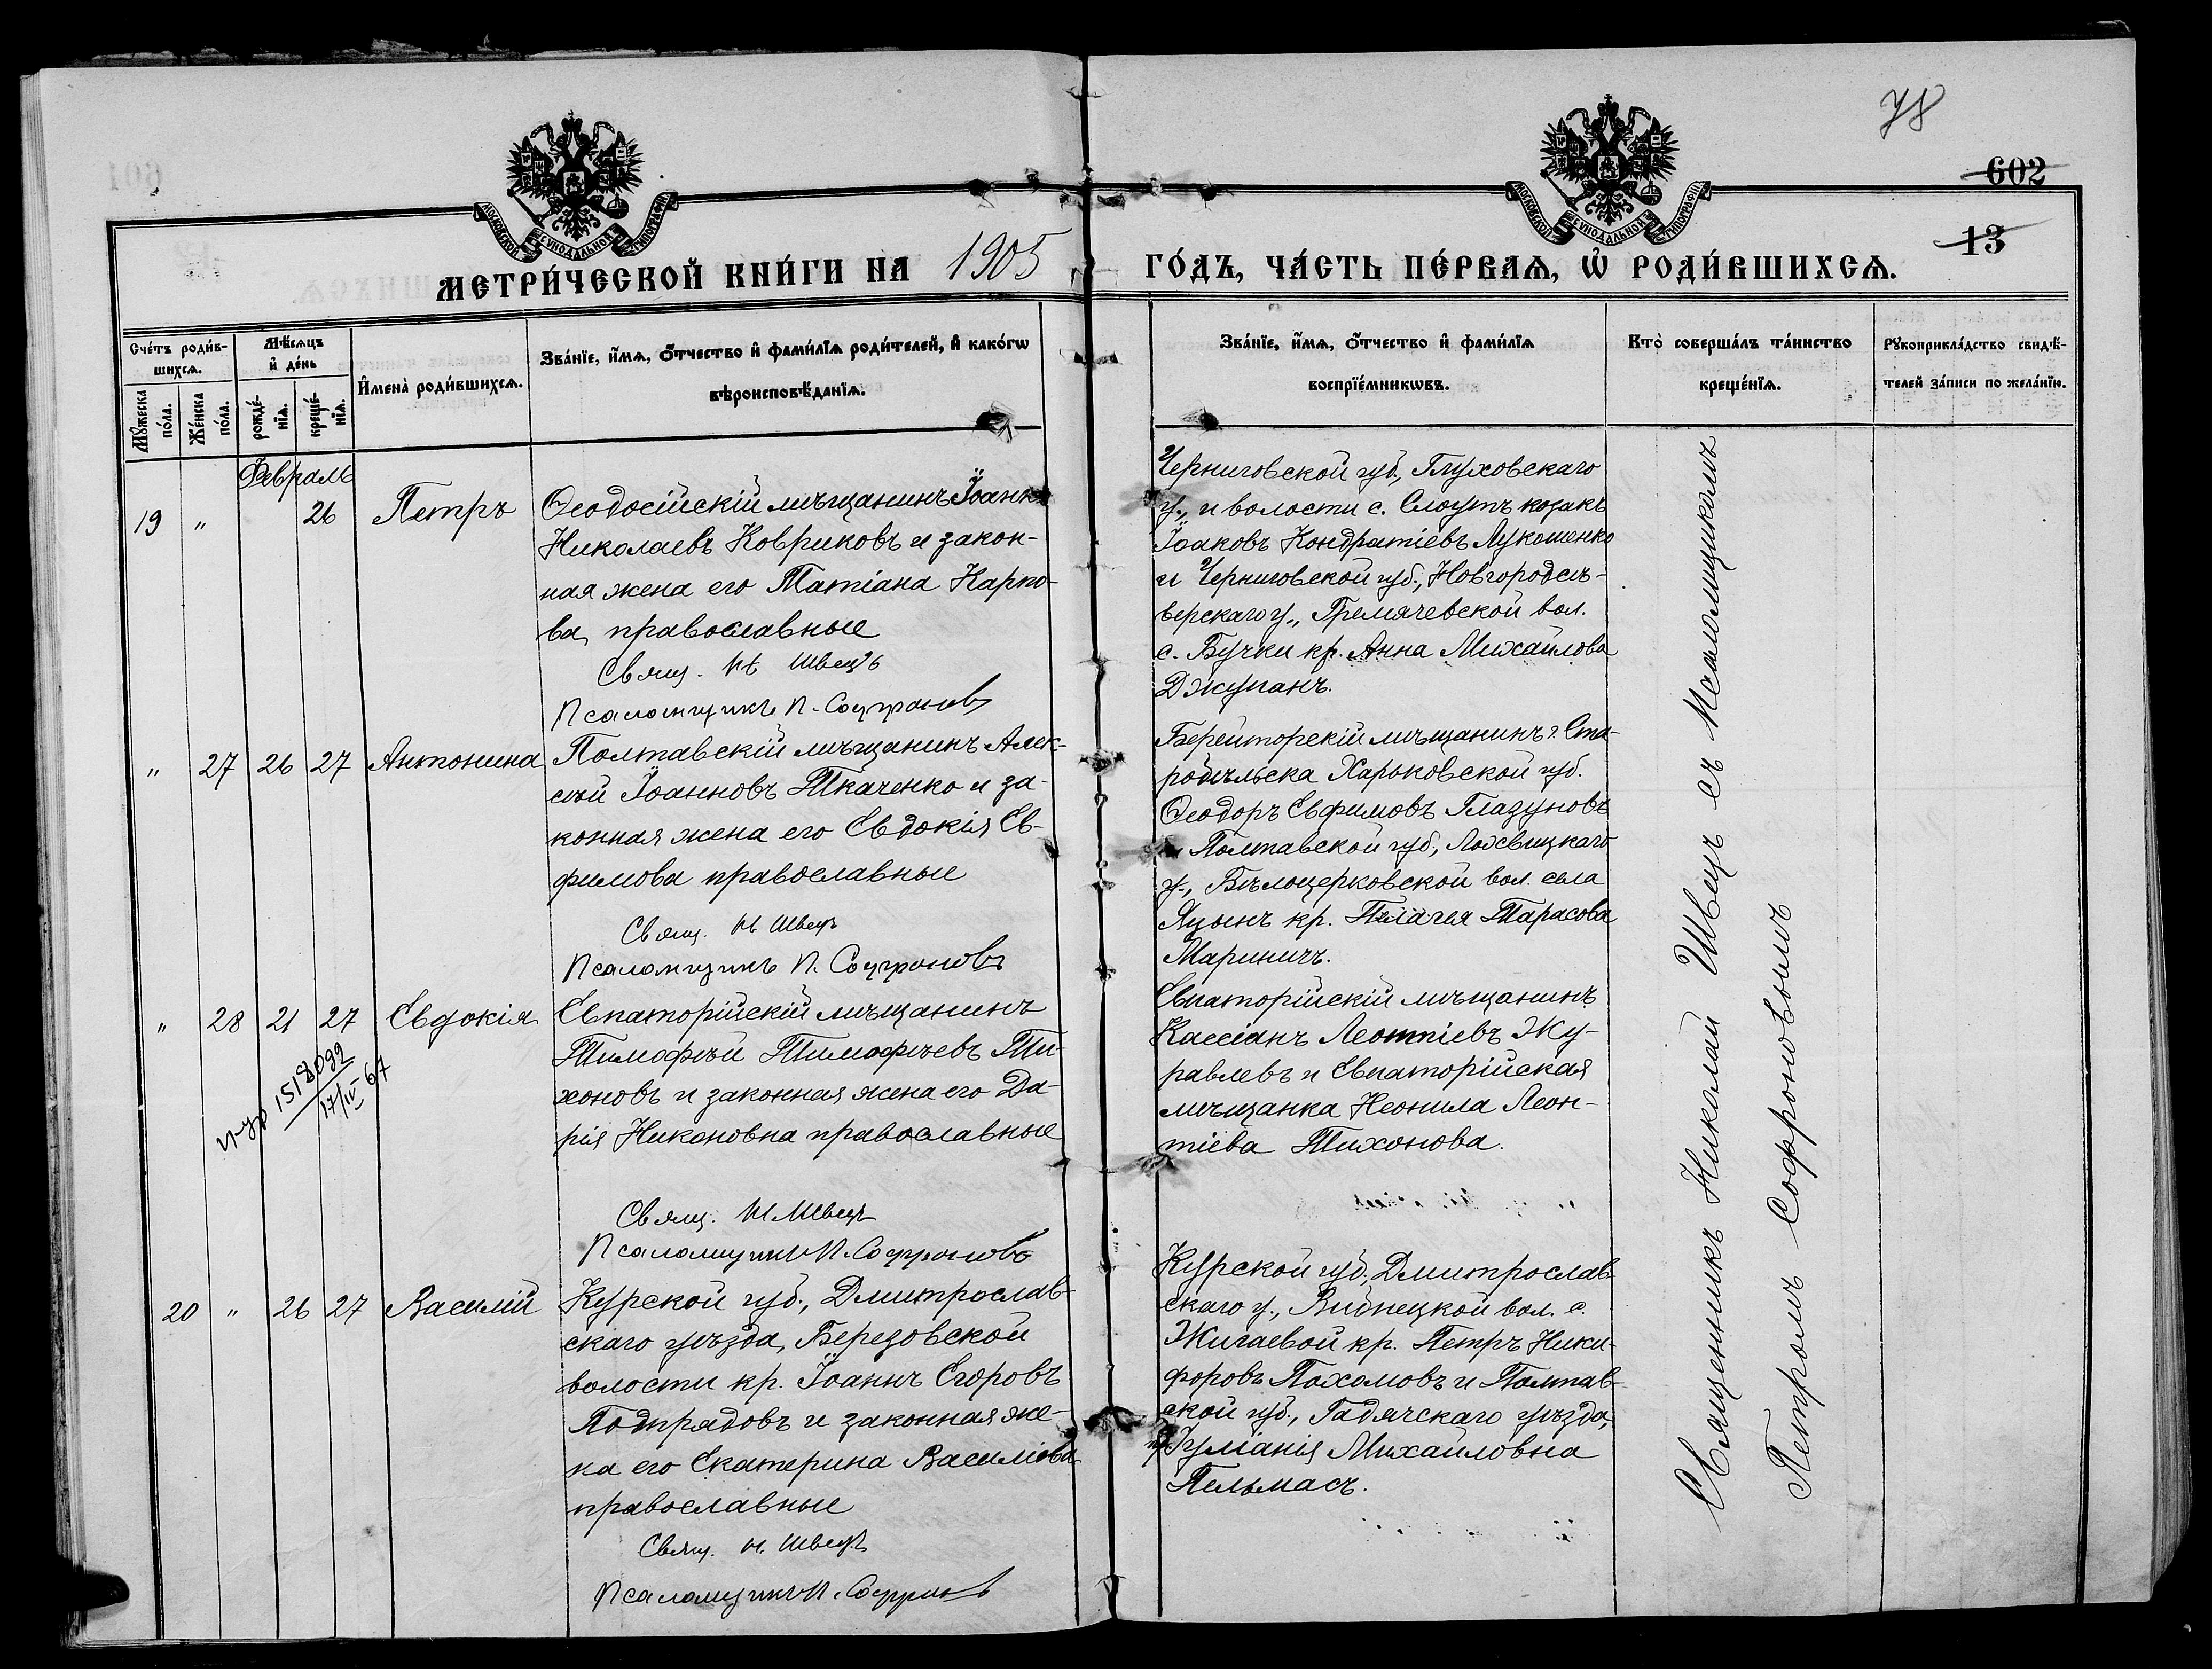 78
602
13
МОСКОВСКОЙ СѴНОДАЛЬНОЙ ТИПОГРАФІИ
МОСКОВСКОЙ СѴНОДАЛЬНОЙ ТИПОГРАФІИ
МЕТРИ́ЧЕСКОЙ КНИ́ГИ НА 1905 ГО́ДЪ, ЧА́СТЬ ПЕ́РВАѦ, Ѡ РОДИ́ВШИХСѦ.
Сче́тъ роди́в-
шихсѧ.
Мꙋ́жеска
по́ла.
Же́нска
по́ла.
Мѣ́сѧцъ
и҆ де́нь
рожде́-
нїѧ.
креще́-
нїѧ.
И҆мена̀ роди́вшихсѧ.
Зва́нїе, и҆́мѧ, ѻ҆́тчество и҆ фами́лїѧ роди́телей, и҆ како́гѡ
вѣроисповѣ́данїѧ.
Зва́нїе, и҆́мѧ, ѻ҆́тчество и҆ фами́лїѧ
воспрїе́мникѡвъ.
Кто̀ соверша́лъ та́инство
креще́нїѧ.
Рꙋкоприкла́дство свидѣ́-
телей за́писи по жела́нїю.
Февраль
19 " 26 Петръ
Ѳеодосійскій мѣщанинъ Іоаннъ
Николаевъ Ковриковъ и закон-
ная жена его Татіана Карпо-
ва, православные
Свящ. Н. Швецъ
Псаломщикъ П. Софроновъ
Черниговской губ., Глуховскаго
у., и волости с. Слоутъ козакъ
Іоаковъ Кондратіевъ Лукошенко
и Черниговской губ., Новгородсѣ-
верскаго у., Гремячевской вол.
с. Бучки кр. Анна Михайлова
Джупанъ.
" 27 26 27 Антонина
Полтавскій мѣщанинъ Алек-
сѣй Іоанновъ Ткаченко и за-
конная жена его Евдокія Ев-
фимова православные
Свящ. Н. Швецъ
Псаломщикъ П. Софроновъ
Берейторскій мѣщанинъ г. Ста-
робѣльска Харьковской губ.
Ѳеодоръ Евфимовъ Глазуновъ
и Полтавской губ., Лохвицкаго
у., Бѣлоцерковской вол. села
Яцынъ кр. Пелагея Тарасова
Мариничъ.
" 28 21 27 Евдокія
1518092
17/IV 67
Евпаторійскій мѣщанинъ
Тимофѣй Тимофѣевъ Ти-
хоновъ и законная жена его Да-
рія Никоновна православные
Свящ. Н. Швецъ
Псаломщикъ П. Софроновъ
Евпаторійскій мѣщанинъ
Кассіанъ Леонтіевъ Жу-
равлевъ и Евпаторійская
мѣщанка Неонила Леон-
тіева Тихонова.
20 " 26 27 Василій
Курской губ., Дмитрослав-
скаго уѣзда, Березовской
волости кр. Іоаннъ Егоровъ
Подпрядовъ и законная же-
на его Екатерина Василіева
православные
Свящ. Н. Швецъ
Псаломщикъ П. Софроновъ
Курской губ., Дмитрослав-
скаго у., вол. с.
Жигаевой кр. Петръ Ники-
форовъ Пахомовъ и Полтав-
ской губ., Гадячскаго уѣзда,
Іуліанія Михайловна
Пельмасъ.
Священникъ Николай Швецъ съ Псаломщикомъ
Петромъ Софроновымъ